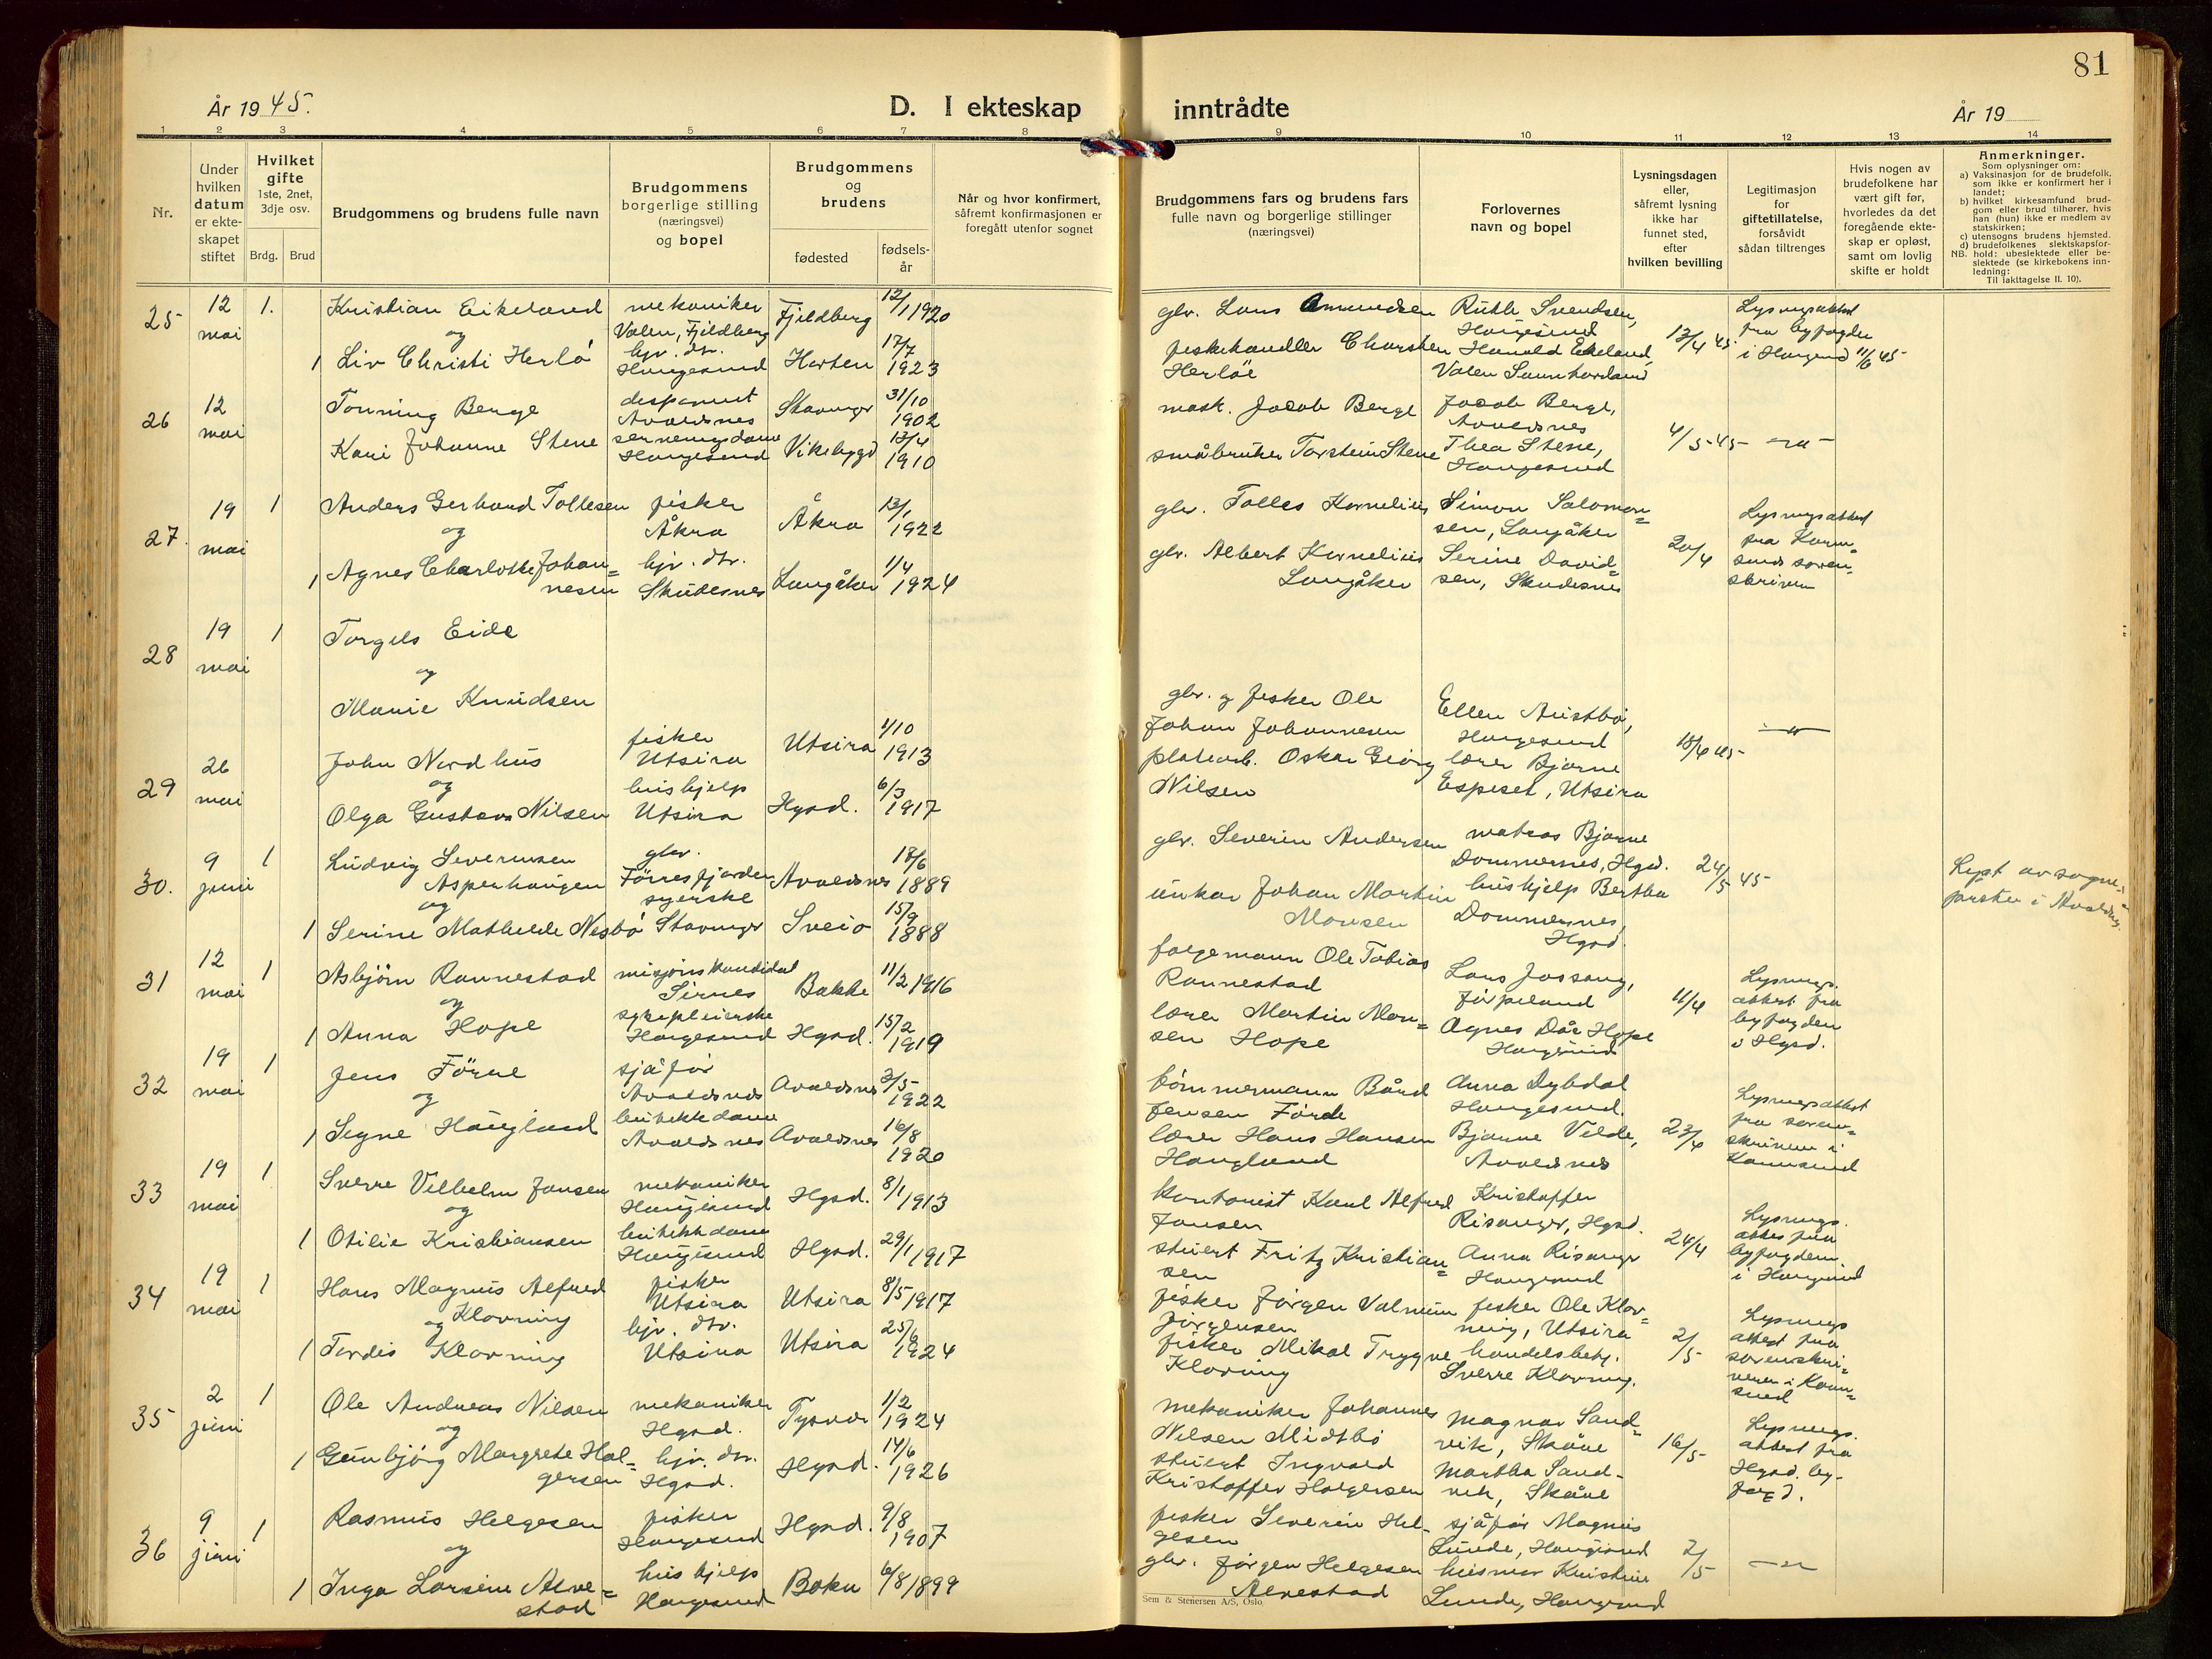 81
År 1945.
D. I ekteskap inntrådte
År 19
1 2 3 4 5 6 7 8 9 10 11 12 13 14
Nr.
Under hvilken datum er ekte-skapet stiftet
Hvilket gifte 1ste, 2net, 3dje osv.
Brdg. Brud
Brudgommens og brudens fulle navn
Brudgommens borgerlige stilling (næringsvei) og bopel
Brudgommens og brudens
fødested
fødsels-år
Når og hvor konfirmert, såfremt konfirmasjonen er foregått utenfor sognet
Brudgommens fars og brudens fars fulle navn og borgerlige stillinger (næringsvei)
Forlovernes navn og bopel
Lysningsdagen eller, såfremt lysning ikke har funnet sted, efter hvilken bevilling
Legitimasjon for giftetillatelse, forsåvidt sådan tiltrenges
Hvis nogen av brudefolkene har vært gift før, hvorledes da det foregående ekte-skap er opløst, samt om lovlig skifte er holdt
Anmerkninger.
Som oplysninger om:
a) Vaksinasjon for de brudefolk, som ikke er konfirmert her i landet;
b) hvilket kirkesamfund brud-gom eller brud tilhører, hvis han (hun) ikke er medlem av statskirken;
c) utensogns brudens hjemsted.
d) brudefolkenes slektskapsfor-
NB. hold: ubeslektede eller be-slektede (se kirkebokens inn-ledning:
Til iakttagelse II. 10).
25 12 mai 1. Kristian Eikeland mekaniker Valen, Fjeldberg Fjeldberg 12/1 1920
og
1 Liv Christi Herlö hjv. dtr. Haugesund Horten 17/7 1923
glv. Lars Amundsen Ruth Svendsen, Haugesund
fiskehandler Charsten Herlöe Harald Eikeland, Valen Sunnhordland
13/4 45 Lysningsattest fra byfogden i Haugesund 11/6 45
26 12 mai Tonning Berge Avaldsnes Stavanger 31/10 1902
Kari Johanne Stene serveringsdame Haugesund Vikebygd 13/4 1910
mask. Jacob Berge Jacob Berge, Avaldsnes
småbruker Torstein Stene Thea Stene, Haugesund
4/5 45 -"-
27. 19 mai 1 Anders Gerhard Tollesen fisker Åkra Åkra 13/1 1922
og
1 Agnes Charlotte Johan=nesen hjv. dtr. Skudesnes Langåker 1/4 1924
glv. Tolles Kornelius Simon Salomon=sen, Langåker
glv. Albert Kornelius Langåker Serine David=sen, Skudesnes
20/4 Lysningsattest fra Karm=sunds soren=skriver
28 19 mai 1 Torgils Eide
og
Marie Knudsen
29 26 mai John Nordhus fisker Utsira Utsira 4/10 1913
og
Olga Gustava Nilsen hushjelp Utsira Hgsd. 6/3 1917
glv. og fisker Ole Johan Johannesen Ellen Austbö, Haugesund
platearb. Oskar Georg Nilsen lærer Bjarne Espeset, Utsira
18/4 45 -"-
30. 9 juni 1 Ludvig Severinsen Asperhaugen glv. Förresfjorden Avaldsnes 18/6 1889
og
1 Serine Mathilde Nesbö syerske Stavanger Sveio 15/9 1888
glv. Severin Andersen matros Bjarne Dommersnes, Hgsd.
unkar Johan Martin Monsen hushjelp Bertha Dommersnes, Hgsd.
24/5 45
Lyst av sogne=presten i Avaldsnes
31 12 mai 1 Asbjörn Rannestad misjonskandidat Sirnes Bakke 11/2 1916
og
1 Anna Hope sykepleierske Haugesund Hgsd. 15/2 1919
Ole Tobias Rannestad Lars Jossang, Jörpeland
lærer Martin Mon=sen Hope Agnes Dår Hope Haugesund
11/4 Lysnings. attest fra byfogden i Hgsd.
32 19 mai 1 Jens Förde sjåfør Avaldsnes Avaldsnes 3/5 1922
og
1 Signe Haugland butikkdame Avaldsnes Avaldsnes 16/8 1920
tömmermann Bård Jensen Förde Anna Dybdal Haugesund.
lærer Hans Hansen Haugland Bjarne Velde, Avaldsnes
23/4 Lysningsattest fra soren=skriveren i Karmsund
33 19 mai 1 Sverre Vilhelm Jansen mekaniker Haugesund Hgsd. 8/1 1913
og
1 Otilie Kristiansen butikkdame Haugesund Hgsd. 29/1 1917
kontorist Karl Alfred Jansen Kristoffer Risanger, Hgsd.
stuert Fritz Kristian=sen Anna Risanger Haugesund
24/4 Lysnings. attes fra byfogden i Haugesund
34 19 mai 1 Hans Magnus Alfred Klovning fisker Utsira Utsira 8/5 1917
og
1 Tordis Klovning hjv. dtr. Utsira Utsira 25/6 1924
fisker Jörgen Valmuin Jörgensen fisker Ole Klov=ning, Utsira
fisker Mikal Trygve Klovning handelsbetj. Sverre Klovning.
2/5 Lysnings attest fra sorenskri=veren i Karm=sund
35 2 juni 1 Ole Andreas Nilsen mekaniker Hgsd. Tysvær 1/2 1924
og
1 Gunbjörg Margrete Hol=gersen hjv. dtr. Hgsd. Hgsd. 14/6 1926
mekaniker Johannes Nilsen Midtbö Magnar Sand=vik, Skåre
stuert Ingvald Kristoffer Holgersen Martha Sand-vik, Skåre
16/5 Lysnings. attest fra Hgsd. by-fogd.
36 9 juni 1 Rasmus Helgesen fisker Haugesund Hgsd. 9/8 1907
og
1 Inga Lorsine Alve=stad hushjelp Haugesund Bokn 6/8 1899
fisker Severin Hel-gesen sjåför Magnus Lunde, Haugesund
glv. Jörgen Helgesen Alvestad husmor Kristine Lunde, Haugesund
2/5 -"-
Sem & Stenersen A/S, Oslo.